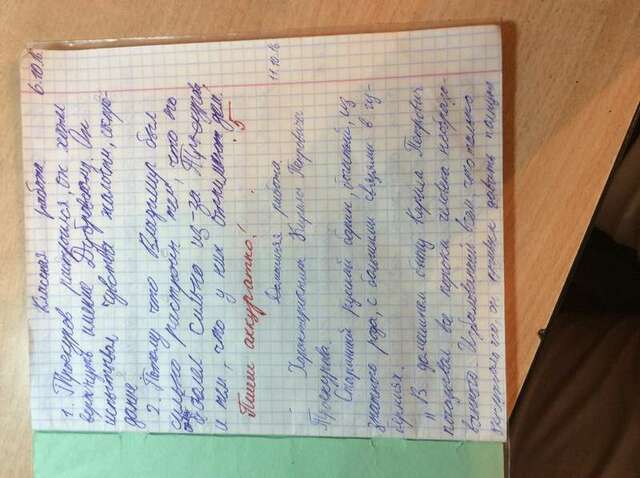 Классная работа 6.10.16
1. Троекуров раскаялся, он хотел
вернуть имение Дубровскому. Он
испытывал чувства жалости, сострадание
2. Потому что Владимир был
сильно расстроен тем, что то
заболел сильно из-за Троекурова
и тем, что у них отнимают дом.
5
Пиши аккуратно!
Домашняя работа 11.10.16
Характеристика Кирила Петровича
Троекурова.
Старинный русский барин, богатый, из
знатного рода, с большими связями в гу-
бернии.
В домашнем быту Кирила Петрович
показывал все пороки человека необразо-
ванного. Избалованный всем, что только
окружало его, он привык давать полную